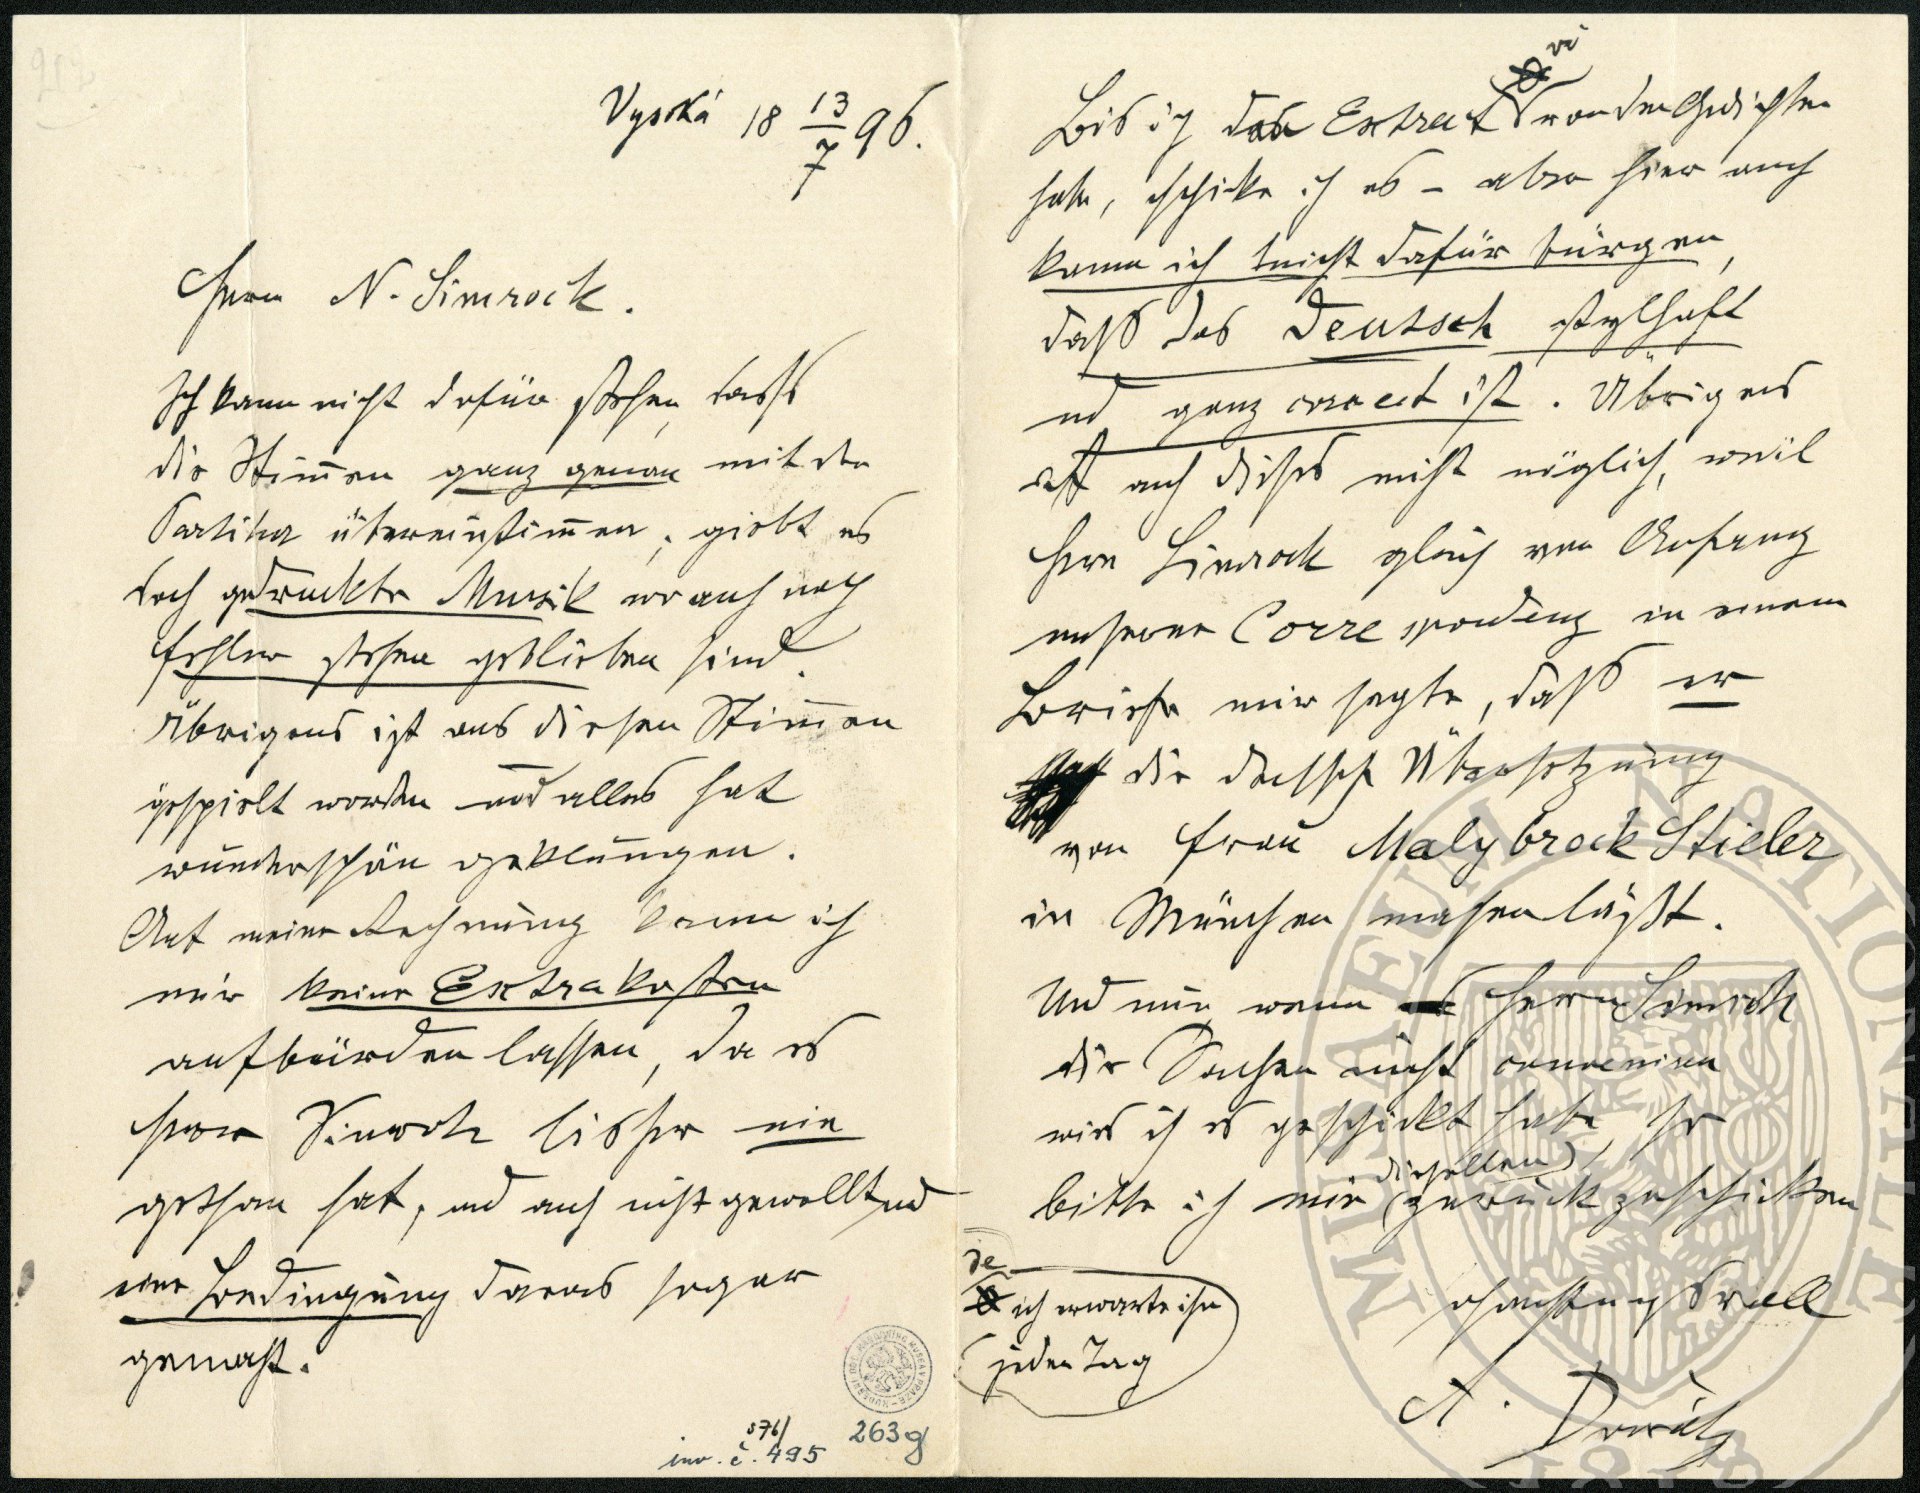 Vysoká 18 13/7 96.
Herrn N. Simrock.
Ich kann nicht dafür stehen, dass
die Stimmen ganz genau mit der
Partitur übereinstimmen, giebt es
doch gedruckte Musik wo auch noch
Fehler stehen geblieben sind.
Übrigens ist aus diesen Stimmen
gespielt worden und alles hat
wunderschön geklungen.
Auf meine Rechnung kann ich
mir keine Extrakosten
aufbürden lassen, da es
Herr Simrock bisher nie
gethan hat, und auch nicht gewollt und
eine Bedingung daraus sogar
gemacht.
263g
576/
inv. č. 495
Bis ich das Extract von den Gedichten
habe, schicke ich es – aber hier auch
kann ich nicht dafür bürgen,
daß das Deutsch stylhaft
und ganz correct ist. Übrigens
ist auch dieses nicht nöthig, weil
Herr Simrock gleich von Anfang
unserer Correspondenz in einem
Briefe mir sagte, daß er
die deutsche Übersetzung
von Frau Malybrock Stieler
in München machen läßt.
Und nun wenn Herrn Simrock
die Sachen nicht conveniren
wie ich es geschickt habe, so
bitte ich mir dieselben zurückzuschicken
ich erwarte ihn
jeden Tag
achtungsvoll
A. Dvořák
MUSAEUM NATIONALE
1818